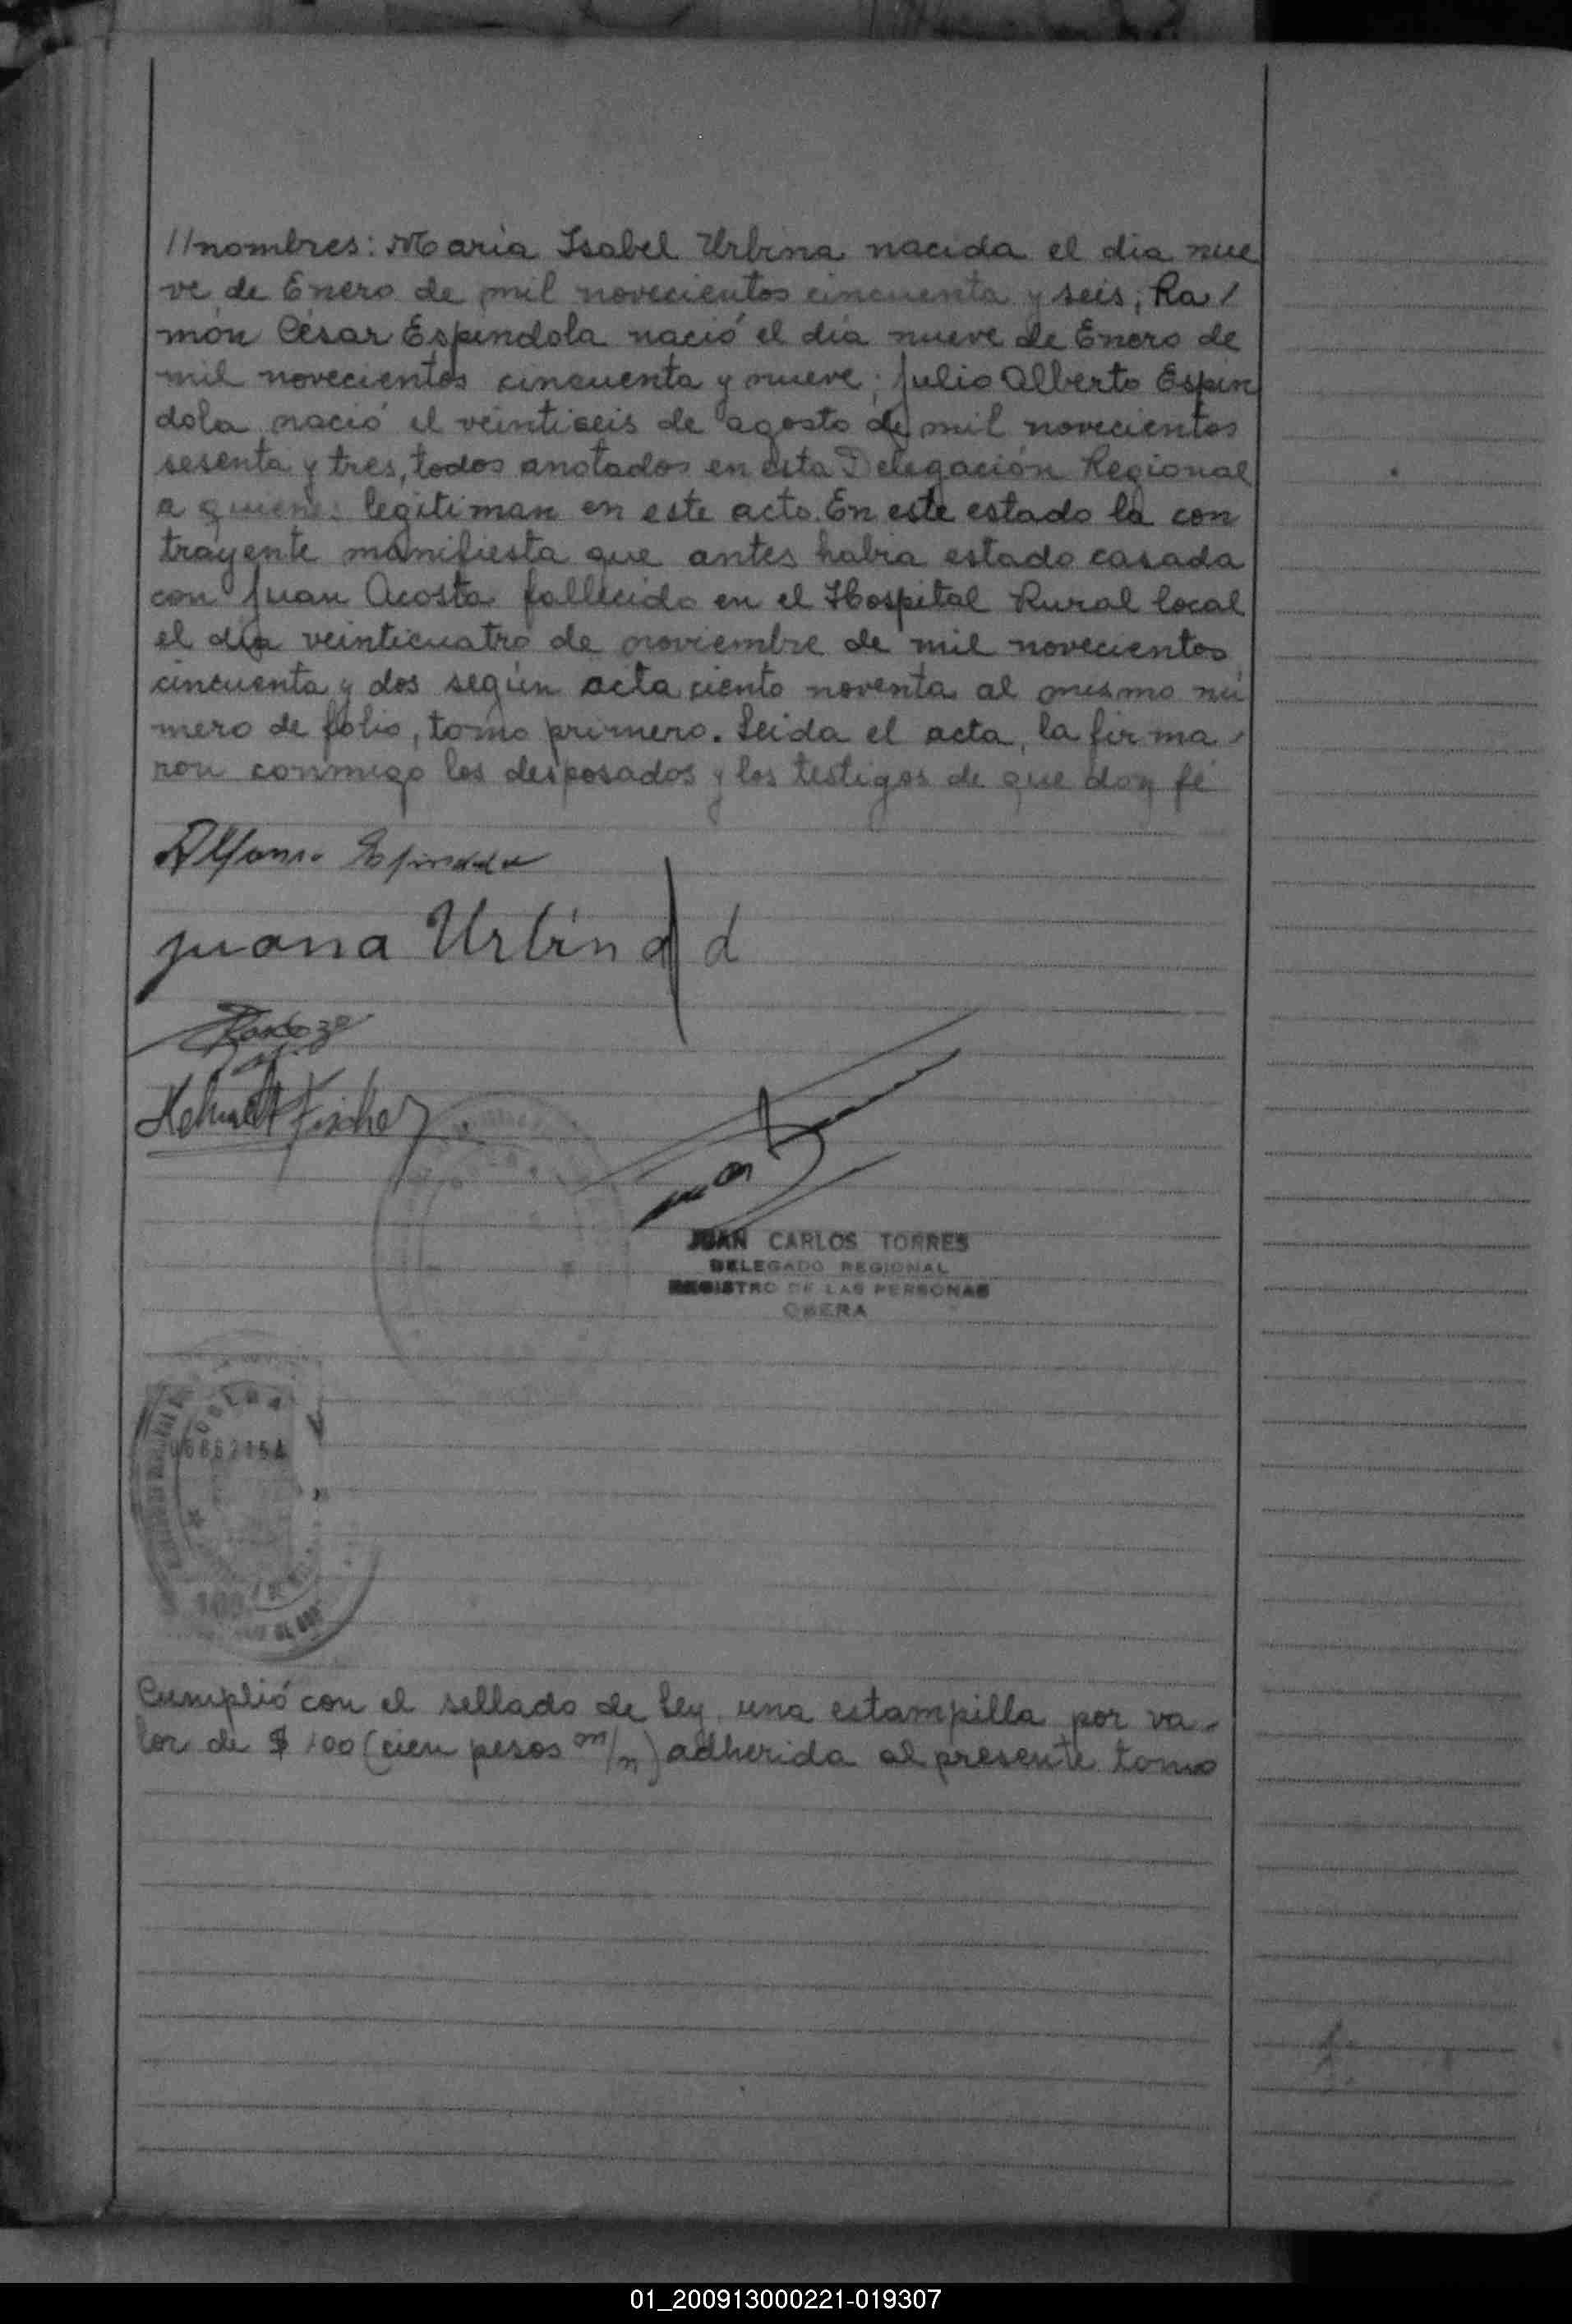 //nombres: Maria Isabel Urbina nacida el dia nue
ve de Enero de mil novecientos cincuenta y seis; Ra/
món César Espindola nació el dia nueve de Enero de
mil novecientos cincuenta y nueve; Julio Alberto Espin
dola nació el veintiseis de agosto de mil novecientos
sesenta y tres, todos anotados en esta Delegación Regional
a quienes legitiman en este acto. En este estado la con
trayente manifiesta que antes habia estado casada
con Juan Acosta fallecido en el Hospital Rural local
el dia veinticuatro de noviembre de mil novecientos
cincuenta y dos según acta ciento noventa al mismo nú
mero de folio, tomo primero. Leida el acta, la firma-
ron conmigo los desposados y los testigos de que doy fé
Alfonso Espindola
juana Urbina d
Helmutt Fischer
JUAN CARLOS TORRES
DELEGADO REGIONAL
REGISTRO DE LAS PERSONAS
OBERA
OBERA
06862154
100
Cumplió con el sellado de Ley, una estampilla por va-
lor de $ 100 (cien pesos m/n) adherida al presente tomo
01_200913000221-019307